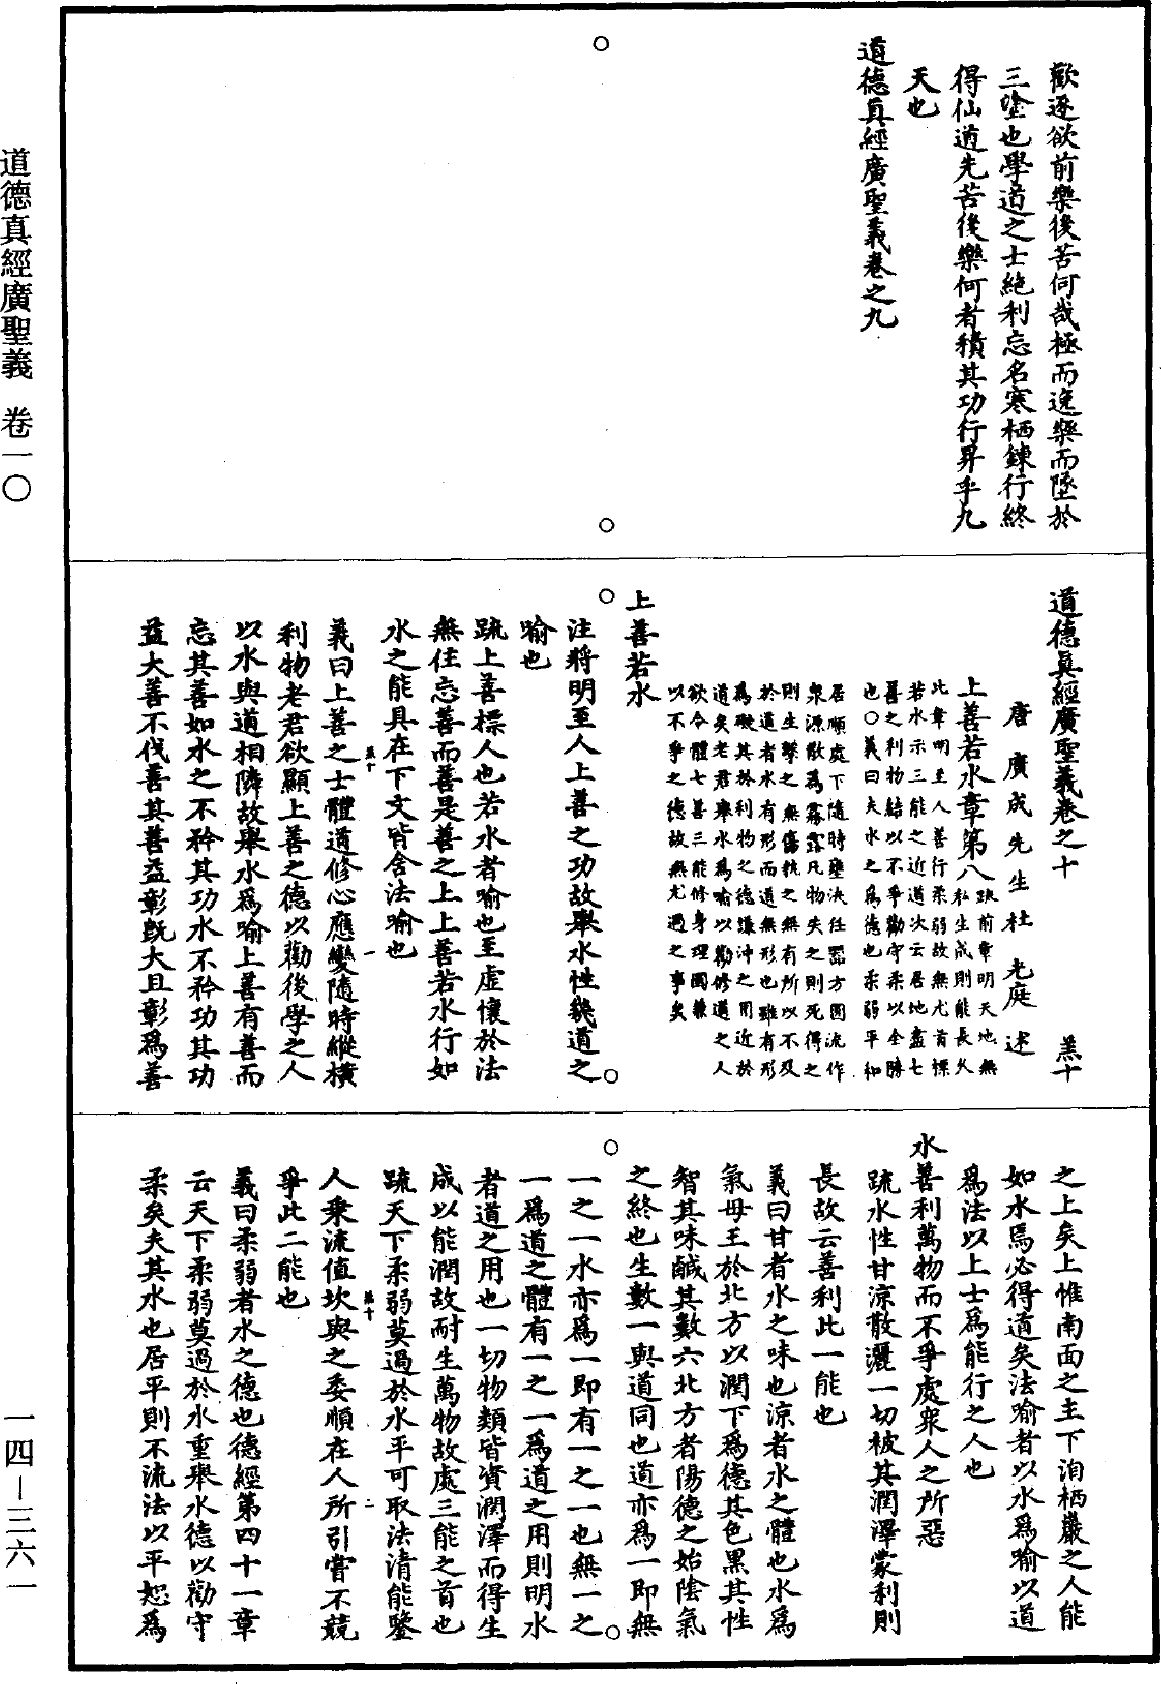 歡逐欲前樂後苦何哉極而逸樂而墜於
三塗也學道之士絕利忘名寒栖鍊行終
得仙道先苦後樂何者積其功行昇乎九
天也
道德真經廣聖義卷之九
道德真經廣聖義卷之十 羔十
唐廣成先生杜光庭述
上善若水章第八
疏前章明天地無
私生成則能長久
此章明至人善行柔弱故無尤首標
若水示三能之近道次云居地盡七
善之利物結以不爭勸守柔以全勝
也○義曰夫水之爲德也柔弱平和
居順處下隨時壅決任器方圓流作
衆源散爲霧露凡物失之則死得之
則生擊之無傷執之無有所以不及
於道者水有形而道無形也雖有形
爲礙其於利物之德謙沖之用近於
道矣老君舉水爲喻以勸修道之人
欲令體七善三能修身理國兼
以不爭之德故無尤過之事矣
上善若水
注將明至人上善之功故舉水性幾道之
喻也
疏上善標人也若水者喻也至虛懷於法
無住忘善而善是善之上上善若水行如
水之能具在下文皆含法喻也
義曰上善之士體道修心應變隨時縱橫
利物老君欲顯上善之德以勸後學之人
以水與道相隣故舉水爲喻上善有善而
忘其善如水之不矜其功水不矜功其功
益大善不伐善其善益彰既大且彰爲善
羔十 一
之上矣上惟南面之主下洎栖巖之人能
如水焉必得道矣法喻者以水爲喻以道
爲法以上士爲能行之人也
水善利萬物而不爭處衆人之所惡
疏水性甘涼散灑一切被其潤澤蒙利則
長故云善利此一能也
義曰甘者水之味也涼者水之體也水爲
氣母王於北方以潤下爲德其色黑其性
智其味鹹其數六北方者陽德之始陰氣
之終也生數一與道同也道亦爲一即無
一之一水亦爲一即有一之一也無一之
一爲道之體有一之一爲道之用則明水
者道之用也一切物類皆資潤澤而得生
成以能潤故耐生萬物故處三能之首也
疏天下柔弱莫過於水平可取法清能鑒
人乘流值坎與之委順在人所引嘗不競
爭此二能也
義曰柔弱者水之德也德經第四十一章
云天下柔弱莫過於水重舉水德以勸守
柔矣夫其水也居平則不流法以平恕爲
羔十 二
道德真經廣聖義 卷一〇
一四—三六一